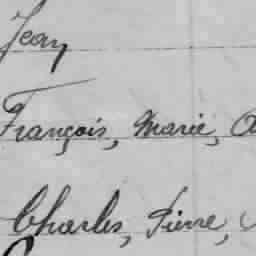 Jean
François, Marie,
Charles, Pierre,